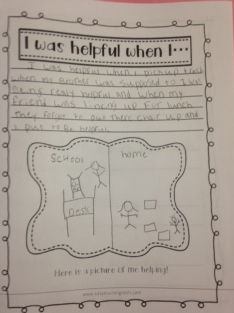 I was helpful when I...
I was helpful when I pick up trash
when my brother was supposed to I was
being really helpful and when my
friend was lineing up for lunch
they forgot to put there chair up and
I put to be helpful.
School
home
Desk
Here is a picture of me helping!